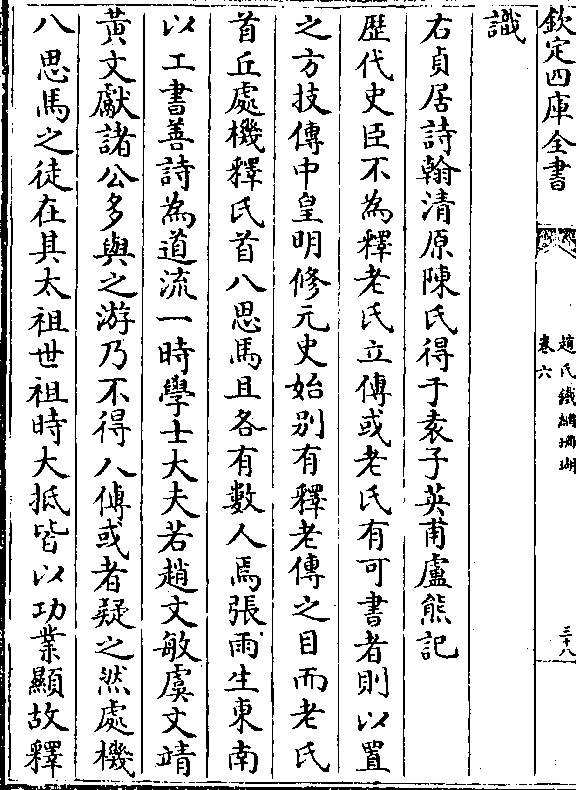 欽定四庫全書
趙氏鐵網珊瑚
卷六
三十八
識
右貞居詩翰清原陳氏得于袁子英甫盧熊記
歴代史臣不為釋老氏立傳或老氏有可書者則以置
之方技傳中皇明修元史始别有釋老傳之目而老氏
首丘處機釋氏首八思馬且各有數人焉張雨生東南
以工書善詩為道流一時學士大夫若趙文敏虞文靖
黄文獻諸公多與之游乃不得入傳或者疑之然處機
八思馬之徒在其太祖世祖時大抵皆以功業顯故釋